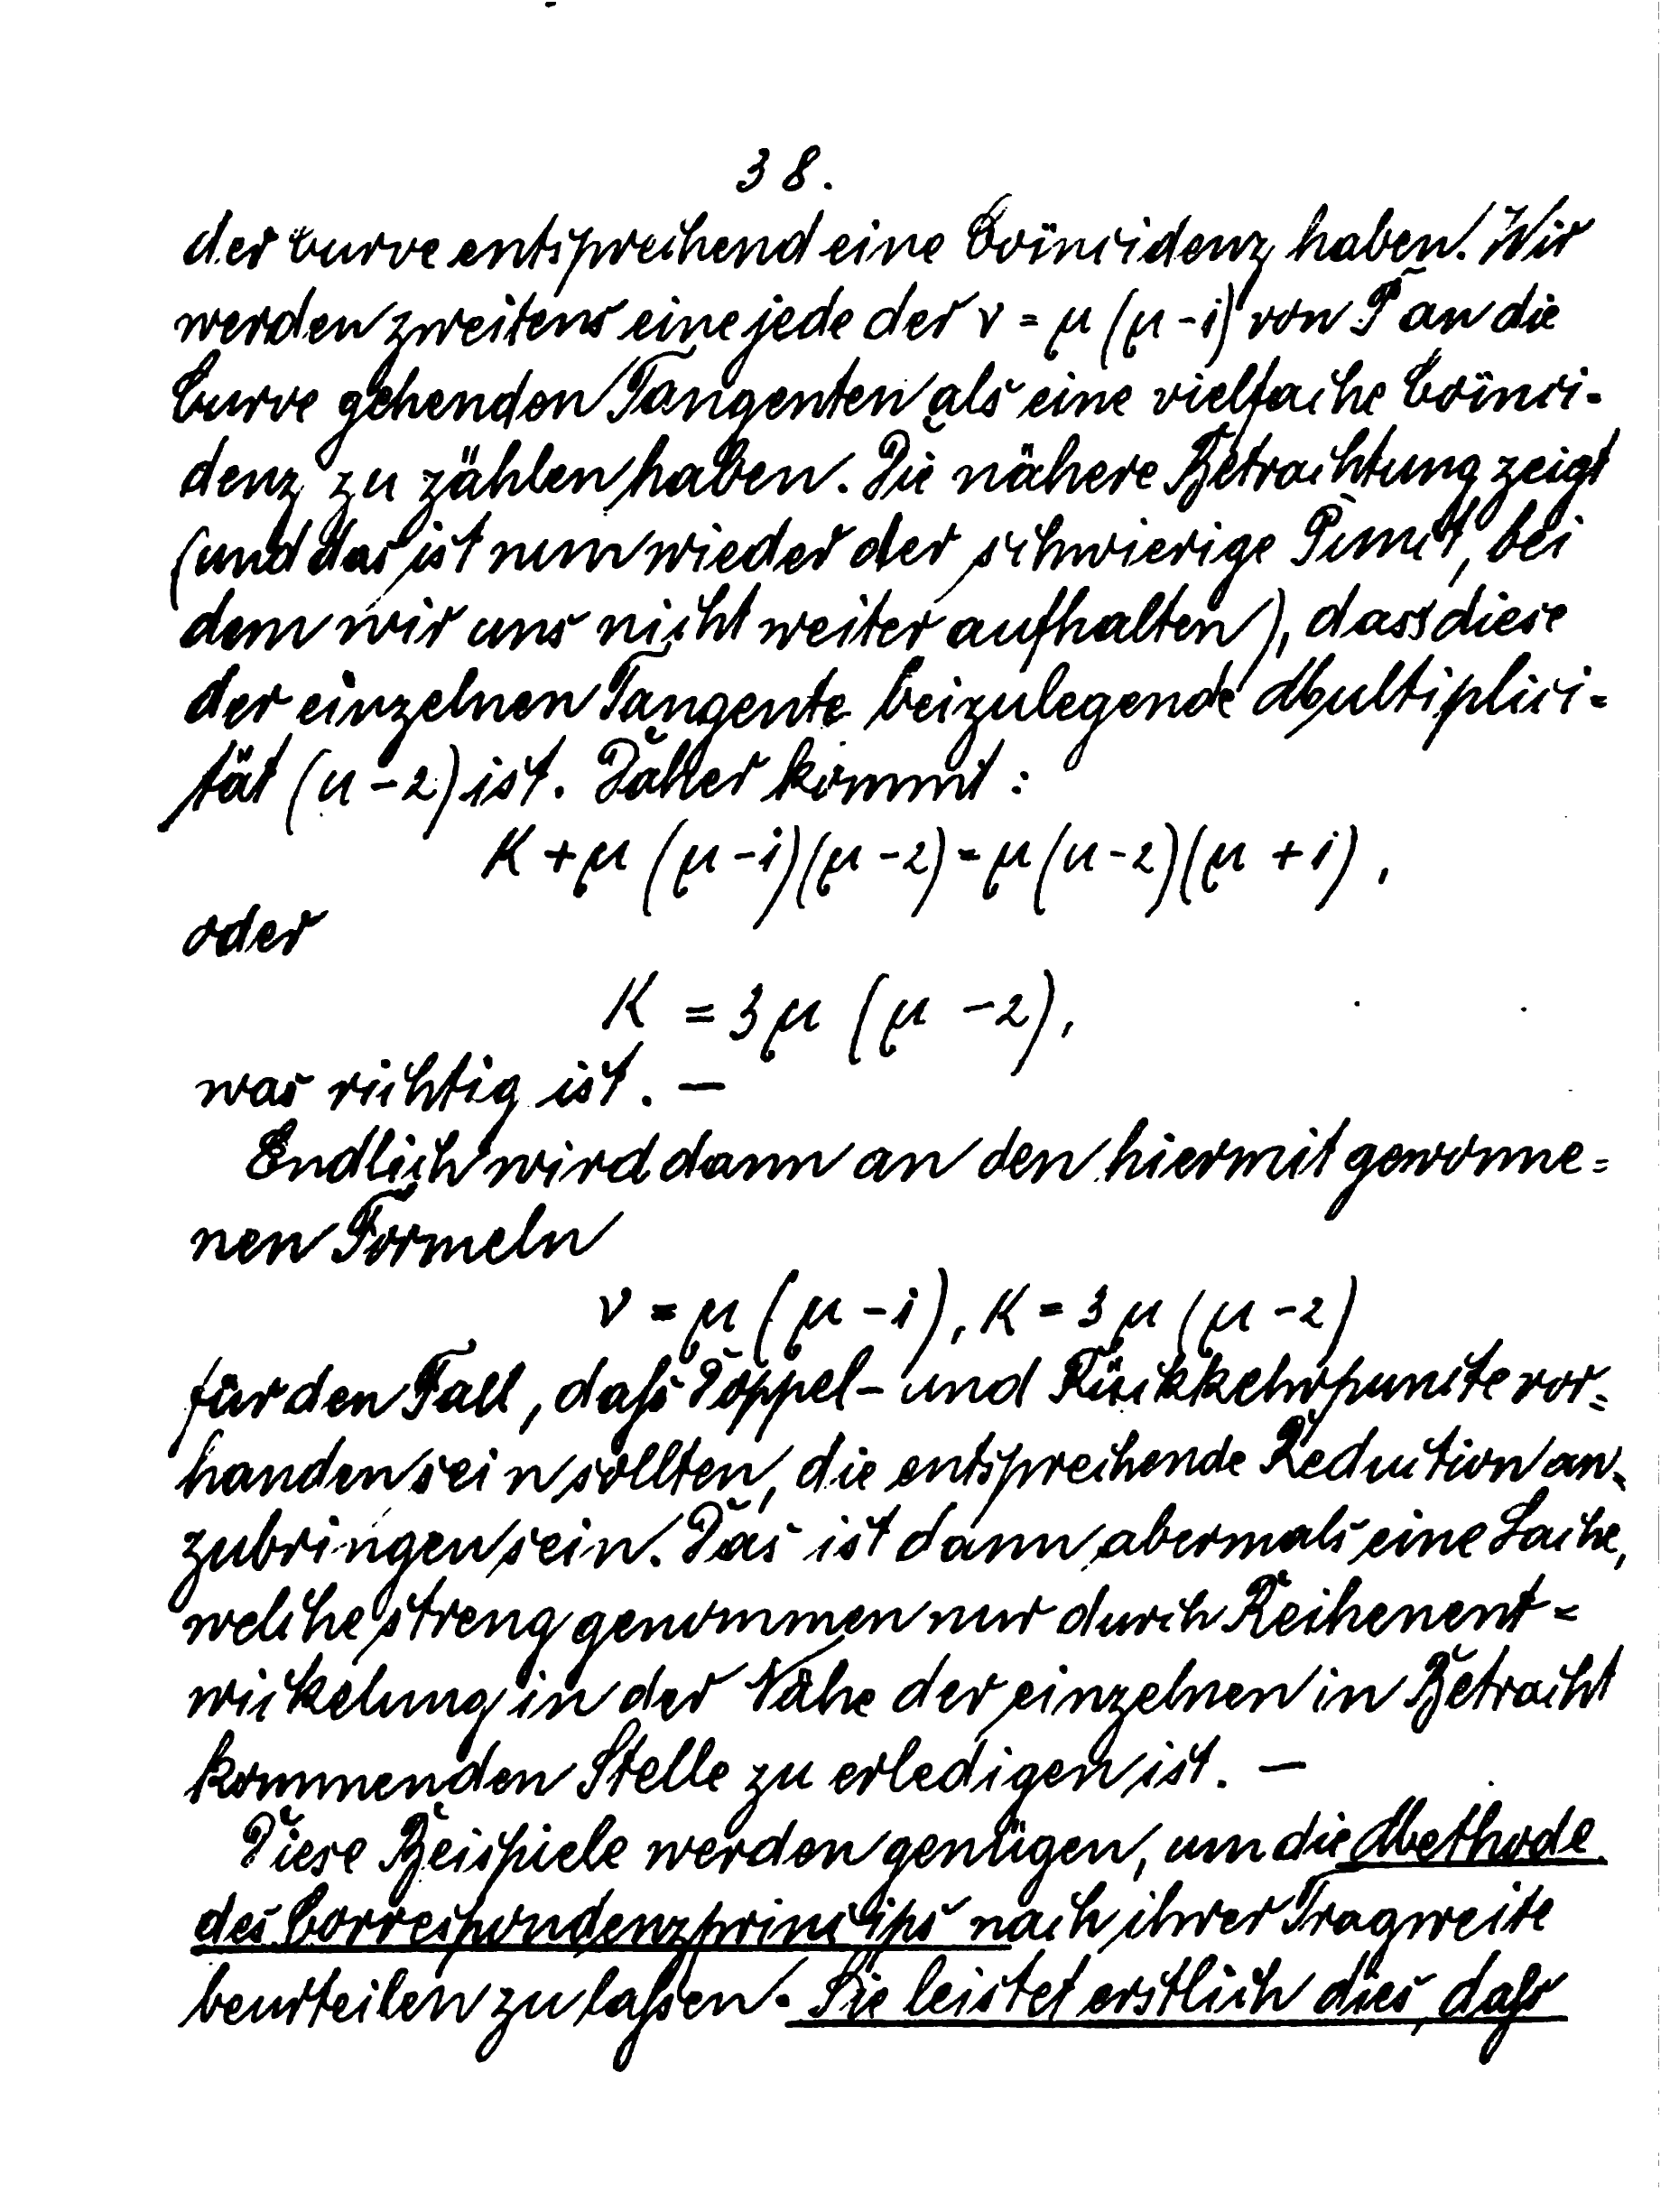 38.
der Curve entsprechend eine Coïncidenz haben. Wir
werden zweitens eine jede der ν = μ (μ - 1) von P an die
Curve gehenden Tangenten als eine vielfache Coïnci-
denz zu zählen haben. Die nähere Betrachtung zeigt
(und das ist nun wieder der schwierige Punct, bei
dem wir uns nicht weiter aufhalten), dass diese
der einzelnen Tangente beizulegende Multiplici-
tät (μ - 2) ist. Daher kommt:
K + μ (μ - 1)(μ - 2) = μ (μ - 2)(μ + 1),
oder
K = 3 μ (μ - 2),
was richtig ist. —
Endlich wird dann an den hiermit gewonne=
nen Formeln
ν = μ (μ - 1), K = 3 μ (μ - 2)
für den Fall, daß Doppel- und Rückkehrpuncte vor=
handen sein sollten, die entsprechende Reduction an=
zubringen sein. Das ist dann abermals eine Sache,
welche streng genommen nur durch Reihenent=
wickelung in der Nähe der einzelnen in Betracht
kommenden Stelle zu erledigen ist. —
Diese Beispiele werden genügen, um die Methode
des Correspondenzprincips nach ihrer Tragweite
beurteilen zu laßen. Sie leistet erstlich dies, daß